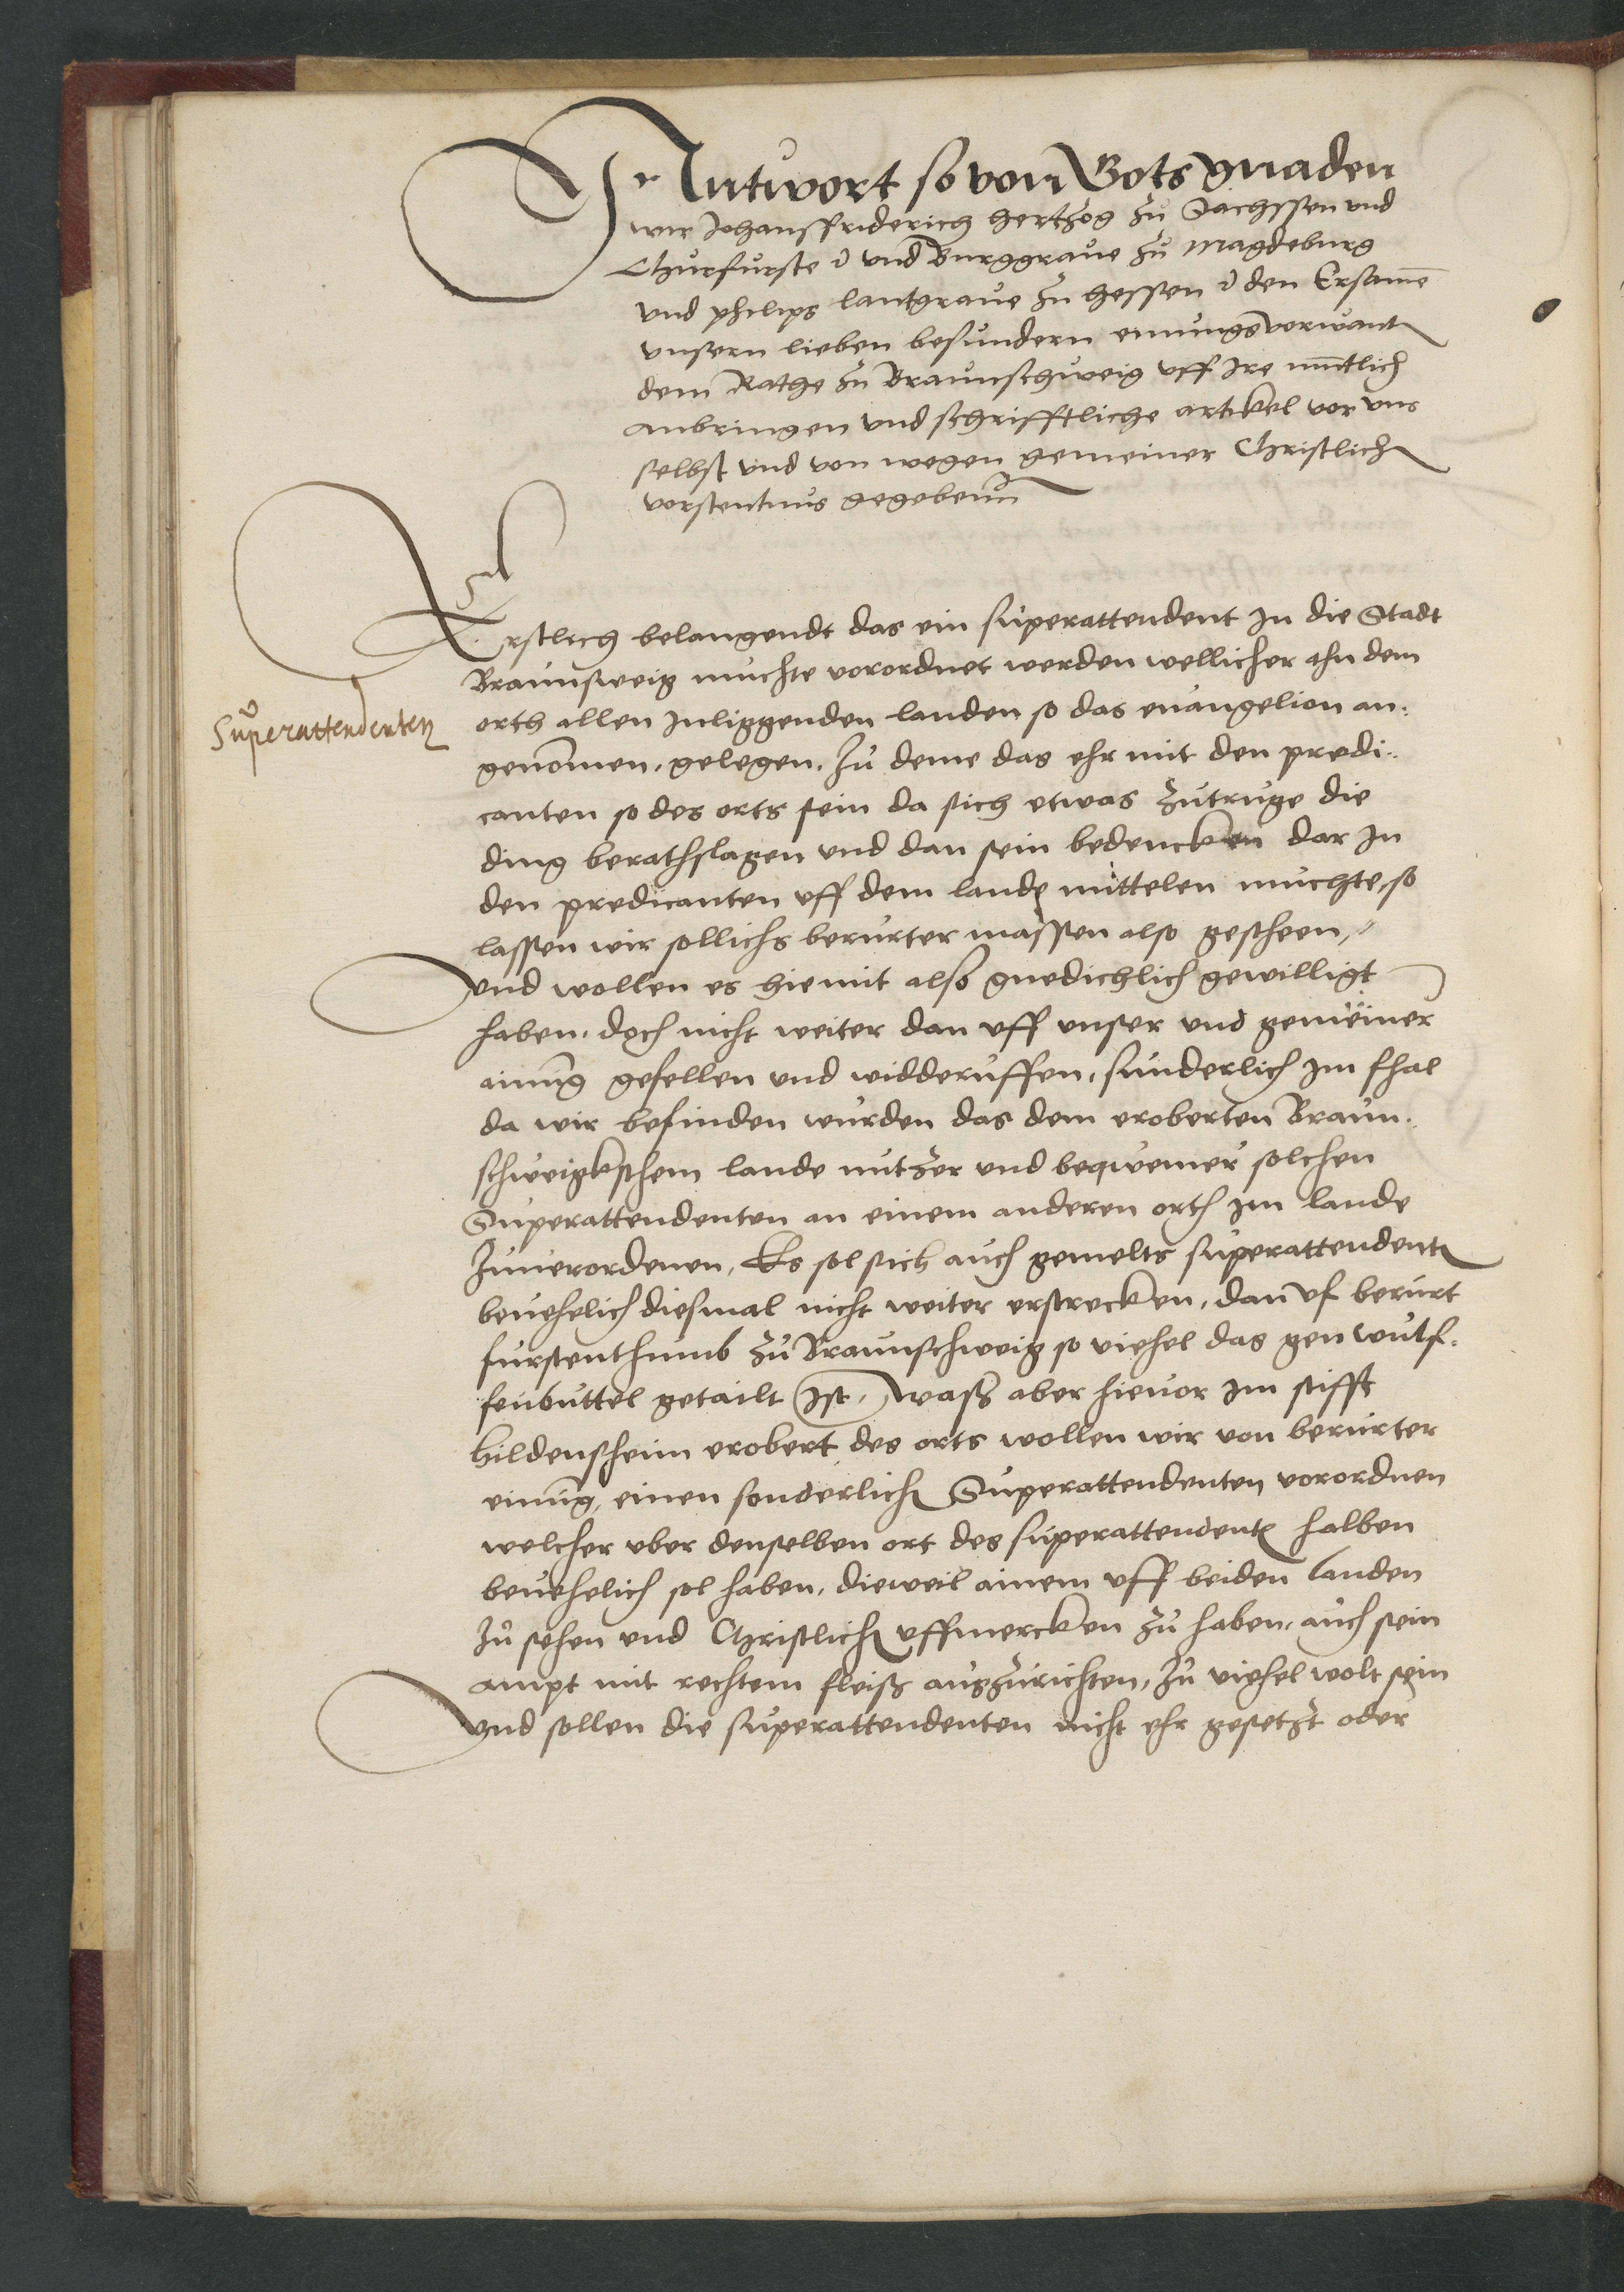 Antwort so von Gots gnaden
wir Johansfriderich hertzog zu Sachssen und
Churfurste ꝛc und Burggraue zu Magdeburg
und philips lantgraue zu hessen ꝛc den Ersamē
unsern lieben besundern einungsverwant
dem Rathe zu Braunschweig uff Ire muntlich
anbringen und schrifftliche artikel vor uns
selbst und von wegen gemeiner Christlich
vorstentnus gegebenn
Erstlich belangendt das ein superattendent In die Stadt
Braunsweig muchte vorordnet werden wellicher ahn dem
Superattendenten
orth allen Inliggenden landen so das euangelion an¬
genōmen, gelegen. Zu deme das ehr mit den predi¬
canten so des orts sein da sich etwas zutruge die
ding berathslagen und dan sein bedencken dar In
den predicanten uff dem lande mittelen muchte, so
lassen wir sollichs berurter massen also gescheen,
und wollen es hiemit also gnedichlich gewilligt
haben, doch nicht weiter dan uff unser und gemeiner
ainung gefellen und widderuffen, sunderlich Im fhal
da wir befinden wurden das dem eroberten Braun¬
schweigkschem lande nutzer und beqwemer solchen
Superattendenten an einem anderen orth Im lande
Zuuerordenen, Es sol sich auch gemelts superattendent
beuehelich diesmal nicht weiter erstrecken, dan uf berurt
furstenthumb zu Braunschweig so viehel das gen wulf¬
fenbuttel getailt Ist, waß aber hieuor Im stifft
hildensheim erobert, des orts wollen wir von berurter
einung, einen sonderlich Superattendenten vorordnen
welcher uber denselben ort des superattendent halben
beuehelich sol haben, dieweil ainem uff beiden landen
Zu sehen und Christlich uffmercken zu haben, auch sein
ampt mit rechtem fleiß auszurichten, zu viehel wolt sein
und sollen die superattendenten nicht ehr gesetzt oder